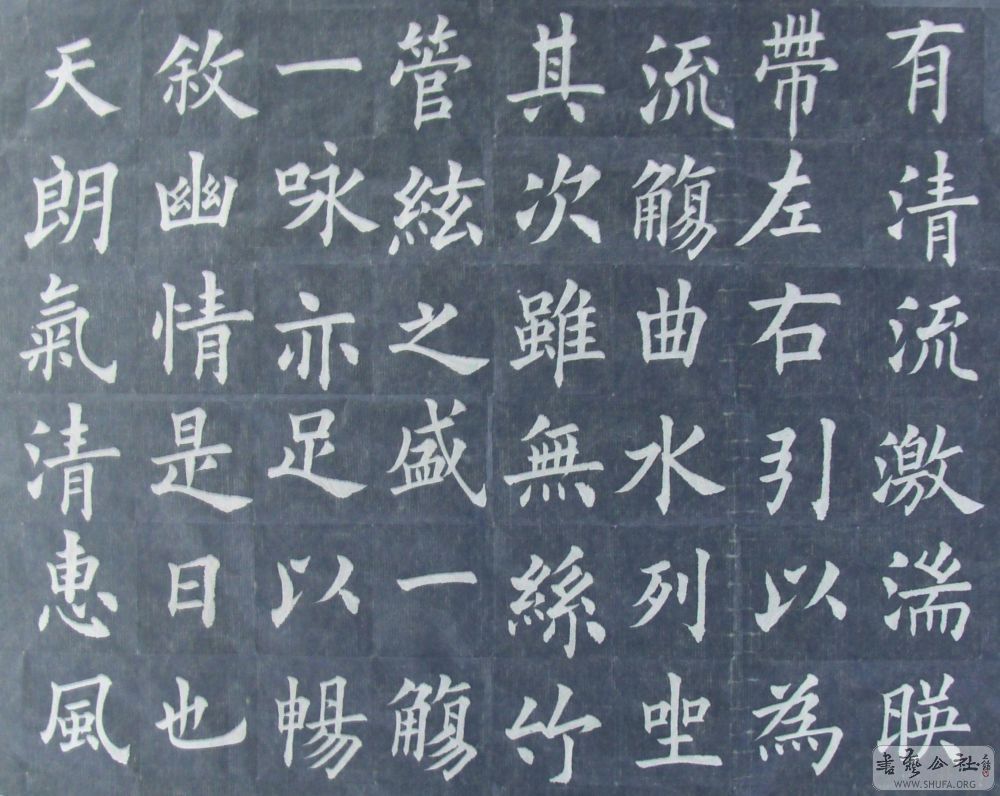 有清流激湍暎
帶左右引以為
流觴曲水列坐
其次雖無絲竹
管絃之盛一觴
一咏亦足以暢
敘幽情是日也
天朗氣清惠風
書藝公社
WWW.SHUFA.ORG